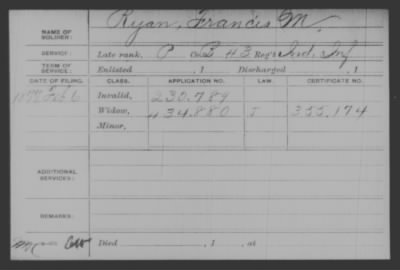 NAME OF SOLDIER: Ryan, Francis M.
SERVICE: Late rank, P Co. B 43 Reg't Ind. Inf
TERM OF SERVICE: Enlisted , 1 Discharged , 1
DATE OF FILING. CLASS. APPLICATION NO. LAW. CERTIFICATE NO.
1877 Feb 6 Invalid, 230.789
Widow, 434.880 J 355,174
Minor,
ADDITIONAL SERVICES:
REMARKS:
Died , 1 , at